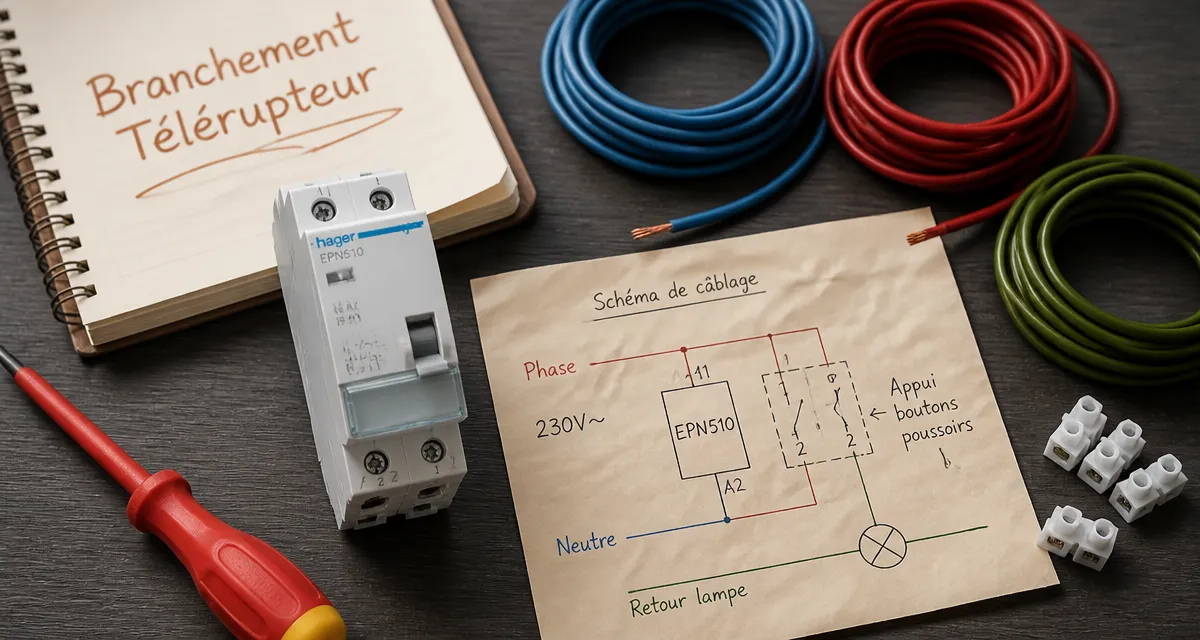 Branchement
Télérupteur
hager
EPN510
Schéma de câblage
Phase
11
1
EPN510
230V~
Appui
boutons
poussoirs
2
2
A2
Neutre
Retour lampe